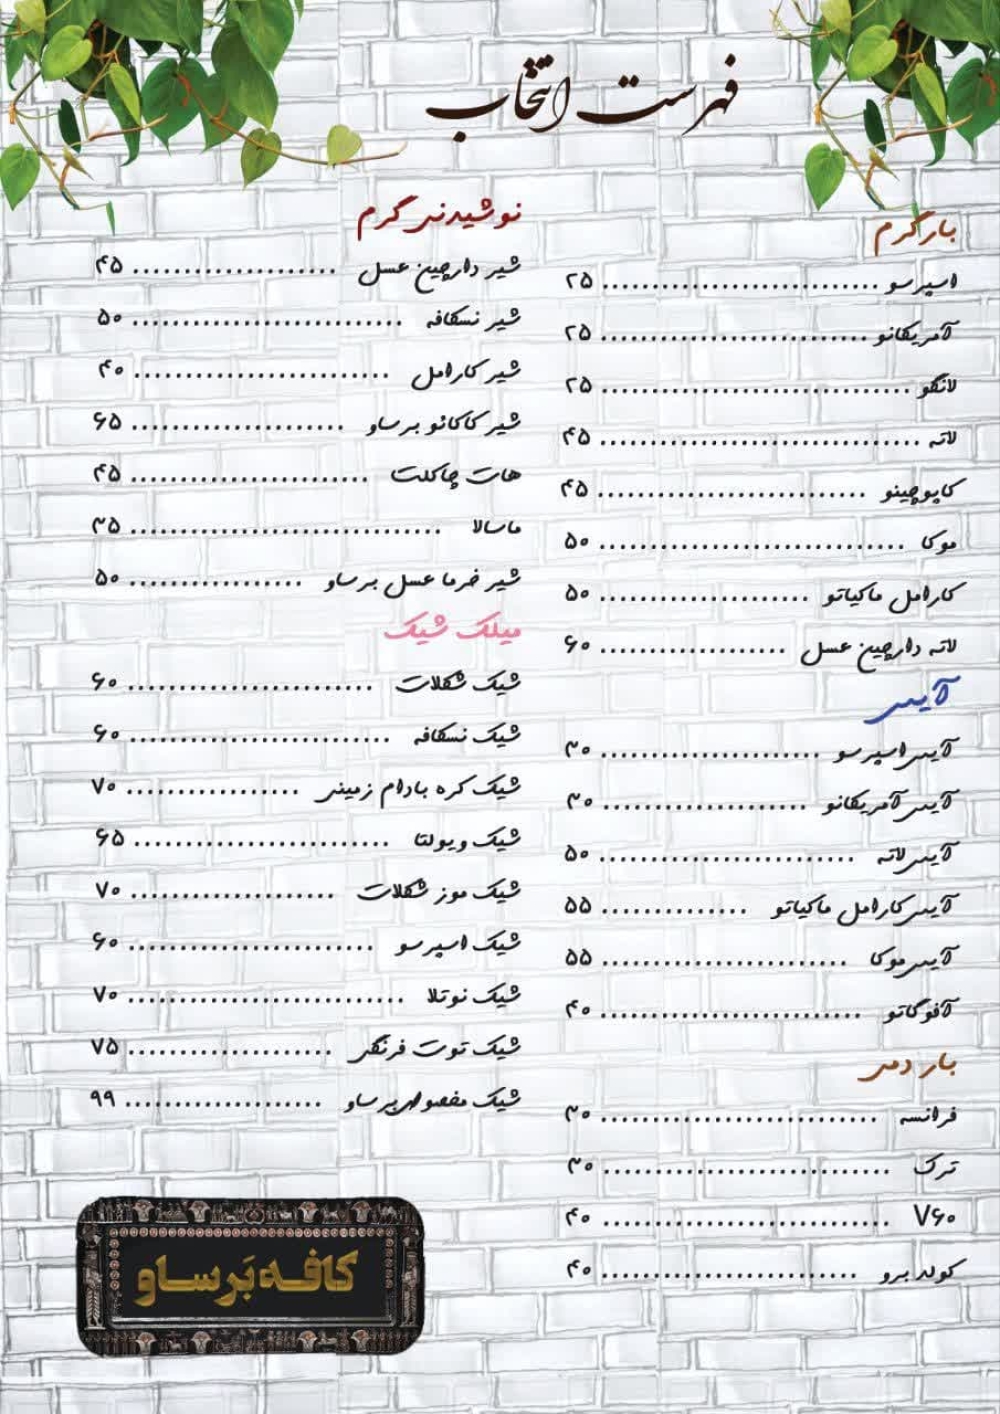 فهرست انتخاب
بار گرم
اسپرسو ........................... ۲۵
آمریکانو ........................... ۲۵
لانگو ............................... ۲۵
لاته ................................ ۴۵
کاپوچینو ........................... ۴۵
موکا ............................... ۵۰
کارامل ماکیاتو ..................... ۵۰
لاته دارچین عسل ................... ۶۰
آیس
آیس اسپرسو ...................... ۳۰
آیس آمریکانو ..................... ۳۰
آیس لاته .......................... ۵۰
آیس کارامل ماکیاتو ............... ۵۵
آیس موکا ......................... ۵۵
آفوگاتو .......................... ۴۰
بار دمی
فرانسه ............................ ۳۰
ترک ............................. ۳۰
V۶۰ ............................. ۴۰
کولد برو .......................... ۴۰
نوشیدنی گرم
شیر دارچین عسل .................... ۴۵
شیر نسکافه ........................... ۵۰
شیر کارامل .......................... ۴۰
شیر کاکائو برساو ...................... ۶۵
هات چاکلت ........................ ۴۵
ماسالا ............................... ۳۵
شیر خرما عسل برساو .................. ۵۰
میلک شیک
شیک شکلات ......................... ۶۰
شیک نسکافه .......................... ۶۰
شیک کره بادام زمینی .................. ۷۰
شیک ویولتا .......................... ۶۵
شیک موز شکلات ..................... ۷۰
شیک اسپرسو ......................... ۶۰
شیک نوتلا ............................ ۷۰
شیک توت فرنگی ..................... ۷۵
شیک مخصوص برساو .................... ۹۹
کافه بَرساو